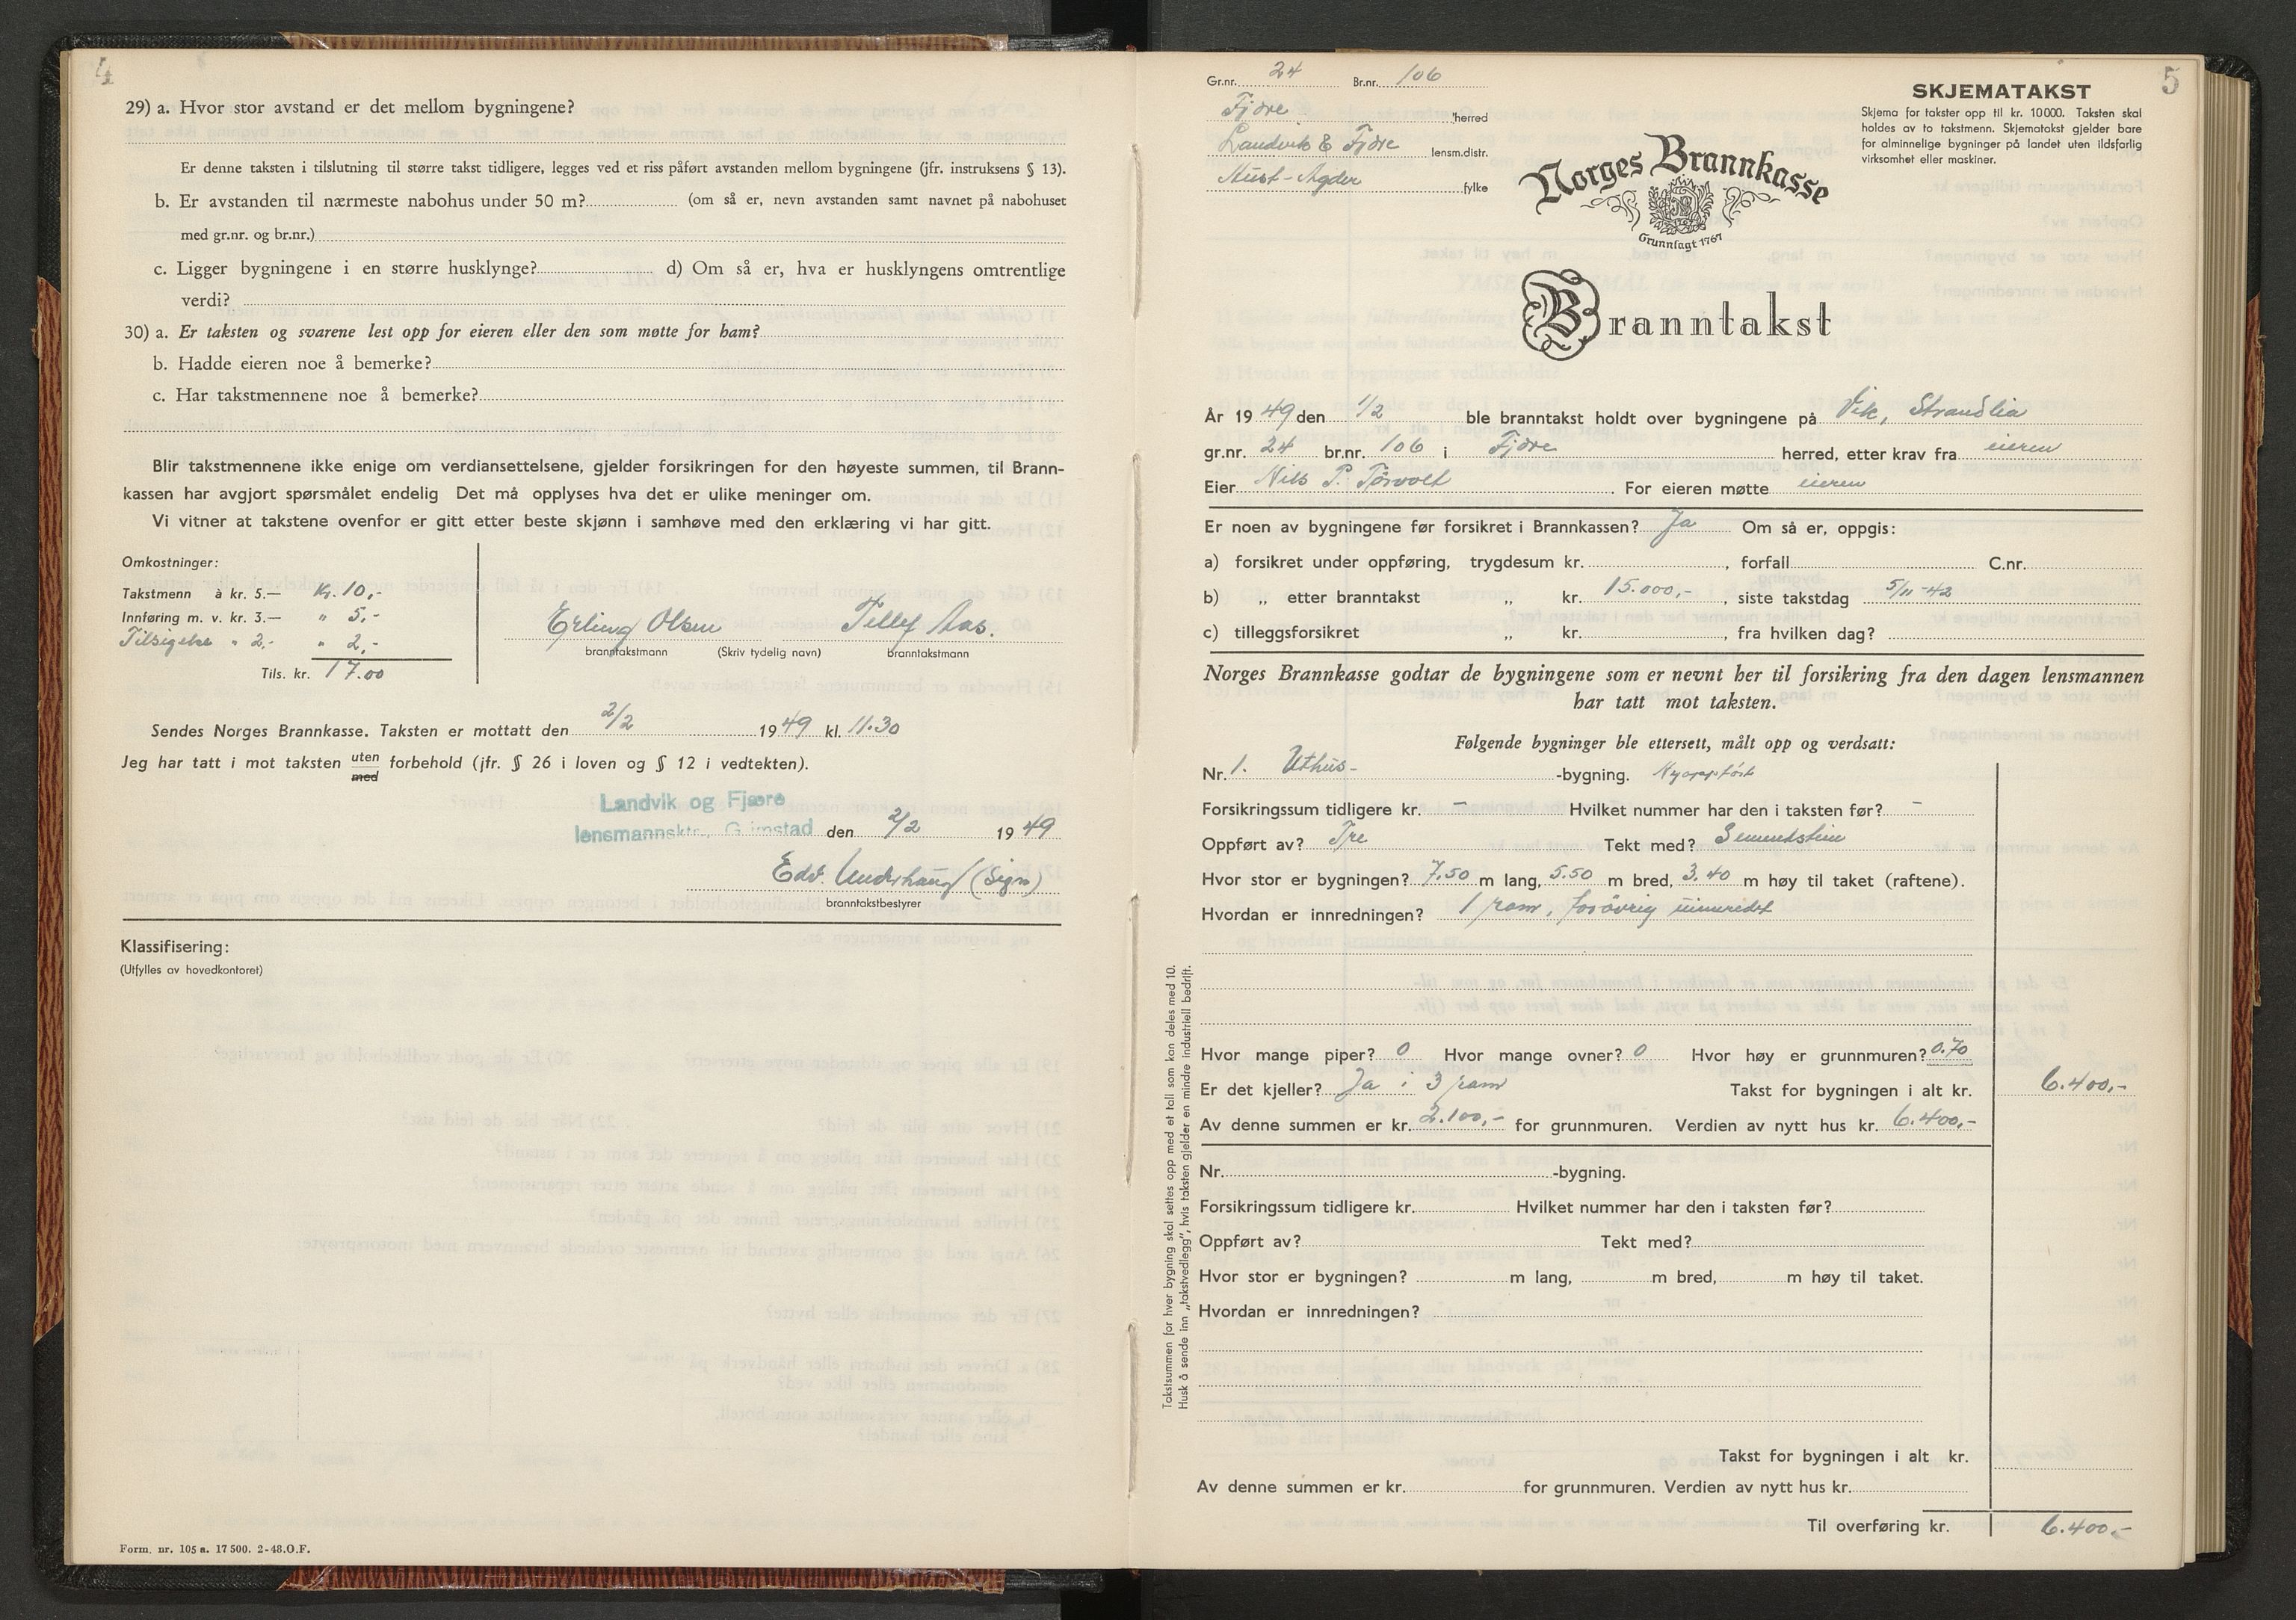 4
29) a. Hvor stor avstand er det mellom bygningene?
Er denne taksten i tilslutning til større takst tidligere, legges ved et riss påført avstanden mellom bygningene (jfr. instruksens § 13).
b. Er avstanden til nærmeste nabohus under 50 m? (om så er, nevn avstanden samt navnet på nabohuset
med gr.nr. og br.nr.)
c. Ligger bygningene i en større husklynge? d) Om så er, hva er husklyngens omtrentlige
verdi?
30) a. Er taksten og svarene lest opp for eieren eller den som møtte for ham?
b. Hadde eieren noe å bemerke?
c. Har takstmennene noe å bemerke?
Blir takstmennene ikke enige om verdiansettelsene, gjelder forsikringen for den høyeste summen, til Brann-
kassen har avgjort spørsmålet endelig Det må opplyses hva det er ulike meninger om.
Vi vitner at takstene ovenfor er gitt etter beste skjønn i samhøve med den erklæring vi har gitt.
Omkostninger:
Takstmenn à kr. 5.— Kr. 10,-
Innføring m. v. kr. 3.— " 5,-
Tilsigelse " 2,- " 2,-
Tils. kr. 17.00
Erling Olsen Tellef Aas.
branntakstmann (Skriv tydelig navn) branntakstmann
Sendes Norges Brannkasse. Taksten er mottatt den 2/2 1949 kl. 11.30
Jeg har tatt i mot taksten uten forbehold (jfr. § 26 i loven og § 12 i vedtekten).
med
Landvik og Fjære
lensmannsktr., Grimstad den 2/2 1949
Edv. Underhaug (sign)
branntakstbestyrer
Klassifisering:
(Utfylles av hovedkontoret)
Form. nr. 105 a. 17 500. 2-48. O.F.
5
Gr.nr. 24 Br.nr. 106
Fjære herred
Landvik & Fjære lensm.distr.
Aust-Agder fylke
SKJEMATAKST
Skjema for takster opp til kr. 10 000. Taksten skal
holdes av to takstmenn. Skjematakst gjelder bare
for alminnelige bygninger på landet uten ildsfarlig
virksomhet eller maskiner.
Norges Brannkasse
Grunnlagt 1767
Branntakst
År 1949 den 1/2 ble branntakst holdt over bygningene på Vik, Strandlia
gr.nr. 24 br.nr. 106 i Fjære herred, etter krav fra eieren
Eier Nils P. For eieren møtte eieren
Er noen av bygningene før forsikret i Brannkassen? Ja Om så er, oppgis:
a) forsikret under oppføring, trygdesum kr. , forfall C.nr.
b) „ etter branntakst „ kr. 15.000,- , siste takstdag 5/11-42
c) tilleggsforsikret „ kr. , fra hvilken dag?
Norges Brannkasse godtar de bygningene som er nevnt her til forsikring fra den dagen lensmannen
har tatt mot taksten.
Følgende bygninger ble ettersett, målt opp og verdsatt:
Nr. 1. Uthus- -bygning. Nyoppført
Forsikringssum tidligere kr. - Hvilket nummer har den i taksten før? -
Oppført av? Tre Tekt med? Sementstein
Hvor stor er bygningen? 7.50 m lang, 5.50 m bred, 3.40 m høy til taket (raftene).
Hvordan er innredningen? 1 rom, forøvrig uinnredet
Hvor mange piper? 0 Hvor mange ovner? 0 Hvor høy er grunnmuren? 0.70
Er det kjeller? Ja i 3 rom Takst for bygningen i alt kr. 6.400,-
Av denne summen er kr. 2.100,- for grunnmuren. Verdien av nytt hus kr. 6.400,-
Nr. -bygning.
Forsikringssum tidligere kr. Hvilket nummer har den i taksten før?
Oppført av? Tekt med?
Hvor stor er bygningen? m lang, m bred, m høy til taket.
Hvordan er innredningen?
Takst for bygningen i alt kr.
Av denne summen er kr. for grunnmuren. Verdien av nytt hus kr.
Til overføring kr. 6.400,-
Takstsummen for hver bygning skal settes opp med et tall som kan deles med 10.
Husk å sende inn „takstvedlegg", hvis taksten gjelder en mindre industriell bedrift.